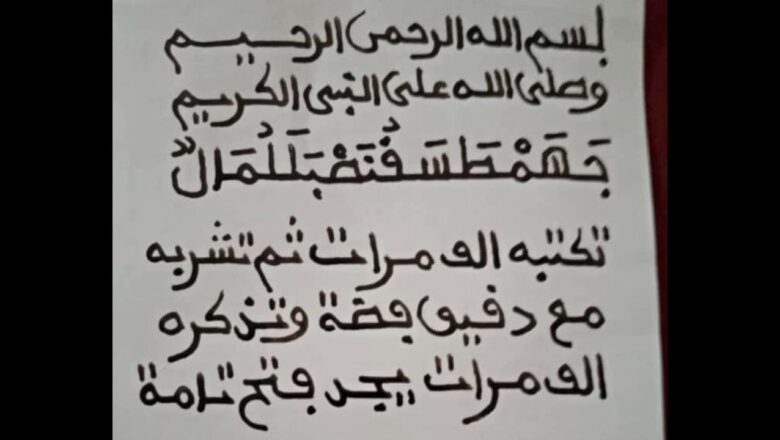 بسم الله الرحمن الرحيم
وصلى الله على النبي الكريم
تكتبه الف مرات ثم تشربه
مع دقيق فضة وتذكره
الف مرات يجد فتح تامة